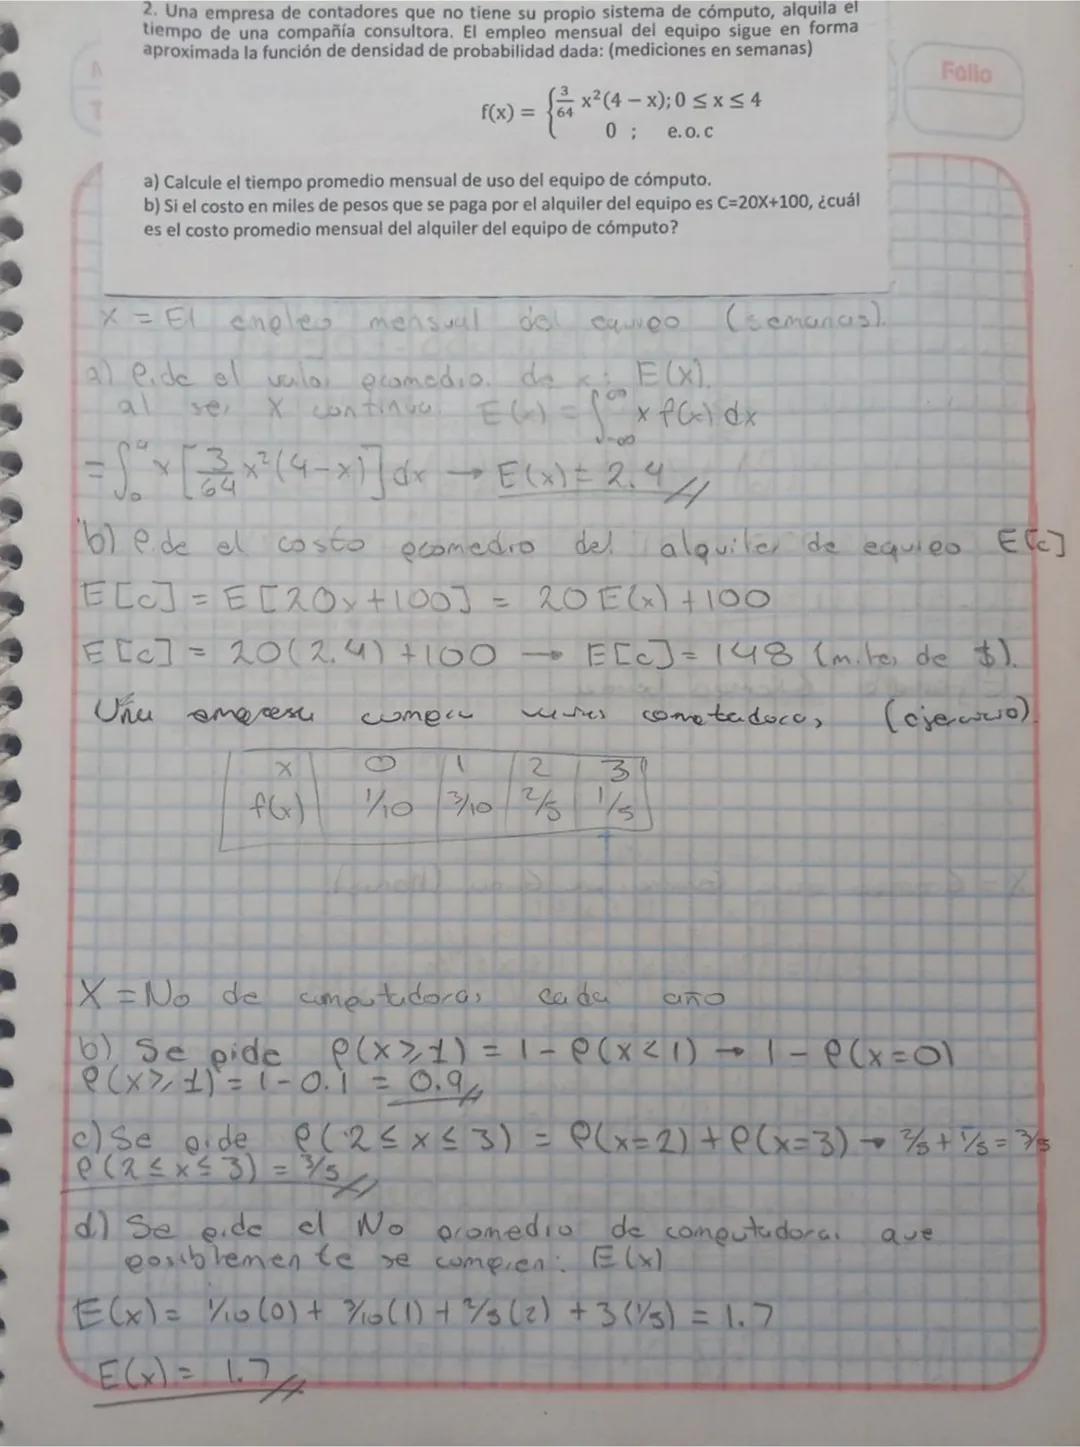 2. Una empresa de contadores que no tiene su propio sistema de cómputo, alquila el
tiempo de una compañía consultora. El empleo mensual del equipo sigue en forma
aproximada la función de densidad de probabilidad dada: (mediciones en semanas)
Folio
f(x) = { 3/64 x²(4 − x); 0 ≤ x ≤ 4
0 ; e.o.c
a) Calcule el tiempo promedio mensual de uso del equipo de cómputo.
b) Si el costo en miles de pesos que se paga por el alquiler del equipo es C=20X+100, ¿cuál
es el costo promedio mensual del alquiler del equipo de cómputo?
X = El empleo mensual del equipo (semanas).
a) Pide el valor promedio de x: E(X).
al ser X continua. E(x) = ∫_{-∞}^{∞} x f(x) dx
= ∫_0^4 x [3/64 x²(4-x)] dx → E(x) = 2.4 //
b) Pide el costo promedio del alquiler de equipo E[c]
E[c] = E[20x+100] = 20E(x)+100
E[c] = 20(2.4)+100 → E[c] = 148 (miles de $).
Una empresa compra computadoras (ejercicio).
x 0 1 2 3
f(x) 1/10 3/10 2/5 1/5
X = No de computadoras cada año
b) Se pide P(x ≥ 1) = 1 - P(x < 1) → 1 - P(x=0)
P(x ≥ 1) = 1 - 0.1 = 0.9 //
c) Se pide P(2 ≤ x ≤ 3) = P(x=2) + P(x=3) → 2/5 + 1/5 = 3/5
P(2 ≤ x ≤ 3) = 3/5 //
d) Se pide el No promedio de computadoras que
posiblemente se compren: E(x)
E(x) = 1/10(0) + 3/10(1) + 2/5(2) + 3(1/5) = 1.7
E(x) = 1.7 //